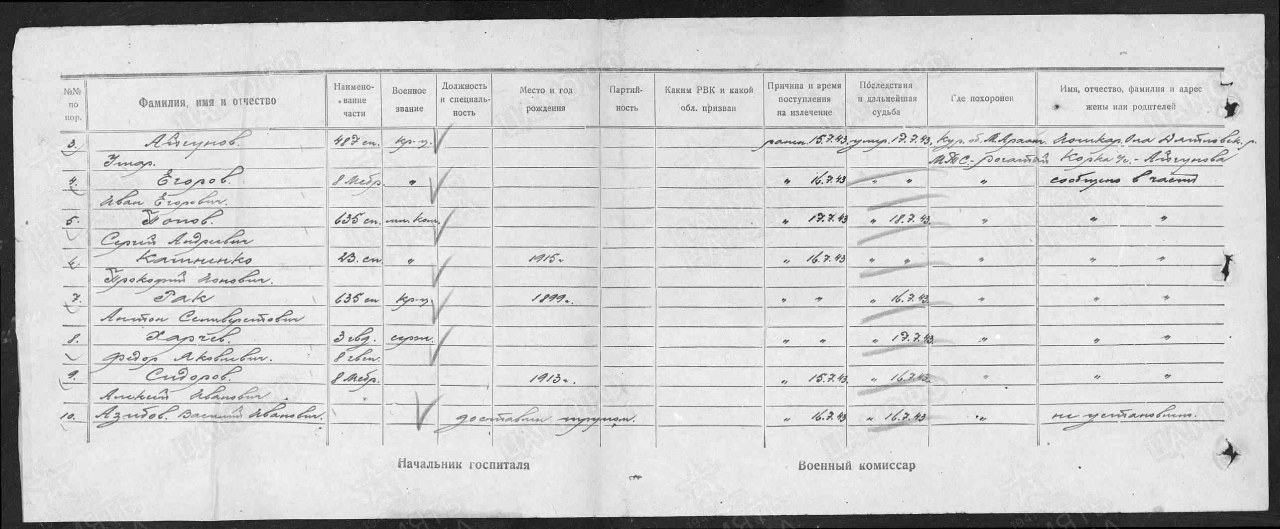 №№ по пор. Фамилия, имя и отчество Наименование части Военное звание Должность и специальность Место и год рождения Партийность Каким РВК и какой обл. призван Причина и время поступления на излечение Последствия и дальнейшая судьба Где похоронен Имя, отчество, фамилия и адрес жены или родителей
3. 487 сп. кр-ц. 15.7.43 умер. 17.7.43
4. Егоров. 8 " " 16.7.43 " " " сообщено в части
Иван Егорович.
5. Попов. 635 сп. " 17.7.43 " 18.7.43 " " "
Сергей Андреевич
6. 23. сп " 1915 г. " 16.7.43 " " " " "
Прокофий
7. Гак 635 сп кр-ц. 1899 г. " " " 16.7.43 " " "
Антон Селиверстович
8. Харчев. 3 гвд. серж. " " " 17.7.43 " " "
Федор Яковлевич.
9. Сидоров. 8 1913 г. " 15.7.43 " 16.7.43 " " "
Алексей Иванович
10. Азидов. Василий Иванович. доставлен трупом. " 16.7.43 " 16.7.43 " не установлено.
Начальник госпиталя Военный комиссар